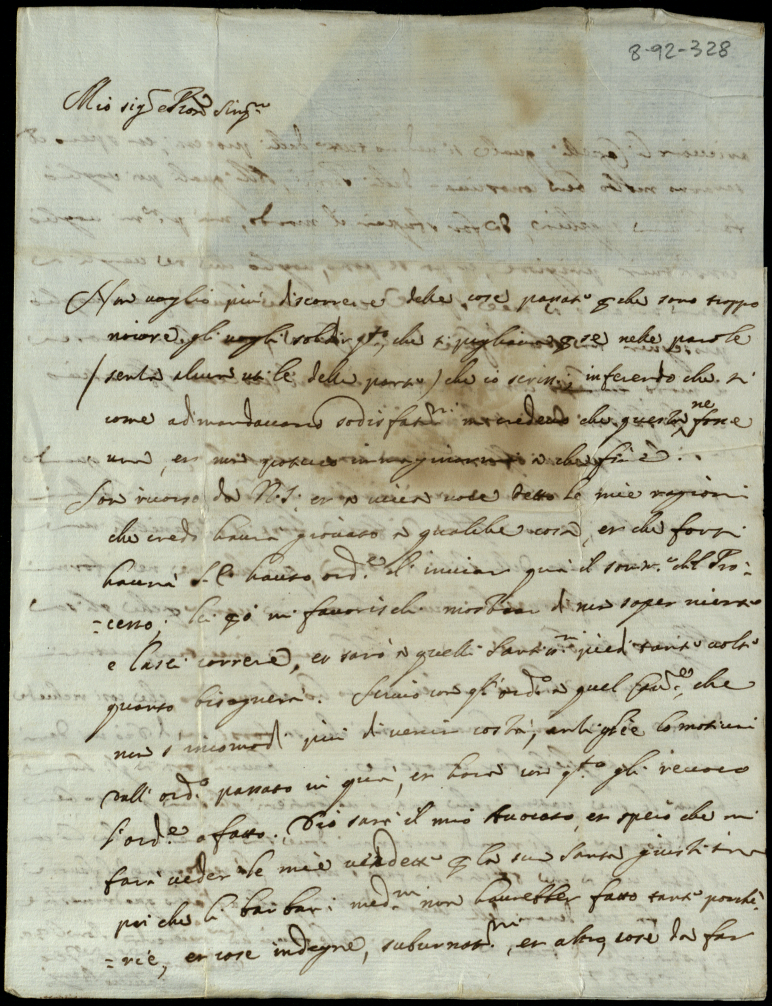 8-92-328
Mio sig.re e Pron. sing.mo
Non voglio più discorrere delle cose passate che sono troppo
noiose, gli che si pigliano se nelle parole
(senta alcuna utile della parte) che io scrissi, inferendo che si
come addimandavano sodisfat.ni credendo che questa ne fosse
una, et non a che fine.
Son ricorso da N.S. et a viva voce detto le mie ragioni
che credo havrà giovato a qualche cosa, et che forsi
havrà S.E. hauto ord.e d'inviar quà il som.o del Pro=
=cesso; lei mi favorischi mostrar di non saper niente
e lasci correre, et sarò a quelli Sant.mi piedi tante volte
quanto bisognerà. Scrivo con gl'ord.o a quel che
non s'incomodi più di venir costà,
dall'ord.o passato in quà, et hora con q.to gli revoco
l'ord.e afatto. Dio sarà il mio Avocato, et spero che mi
farà veder le mie vendette la sua Santa giustitia
poi che li barbari med.mi non haurebber fatto tante porche=
=rie, et cose indegne, subornat.ni, et altre cose da far